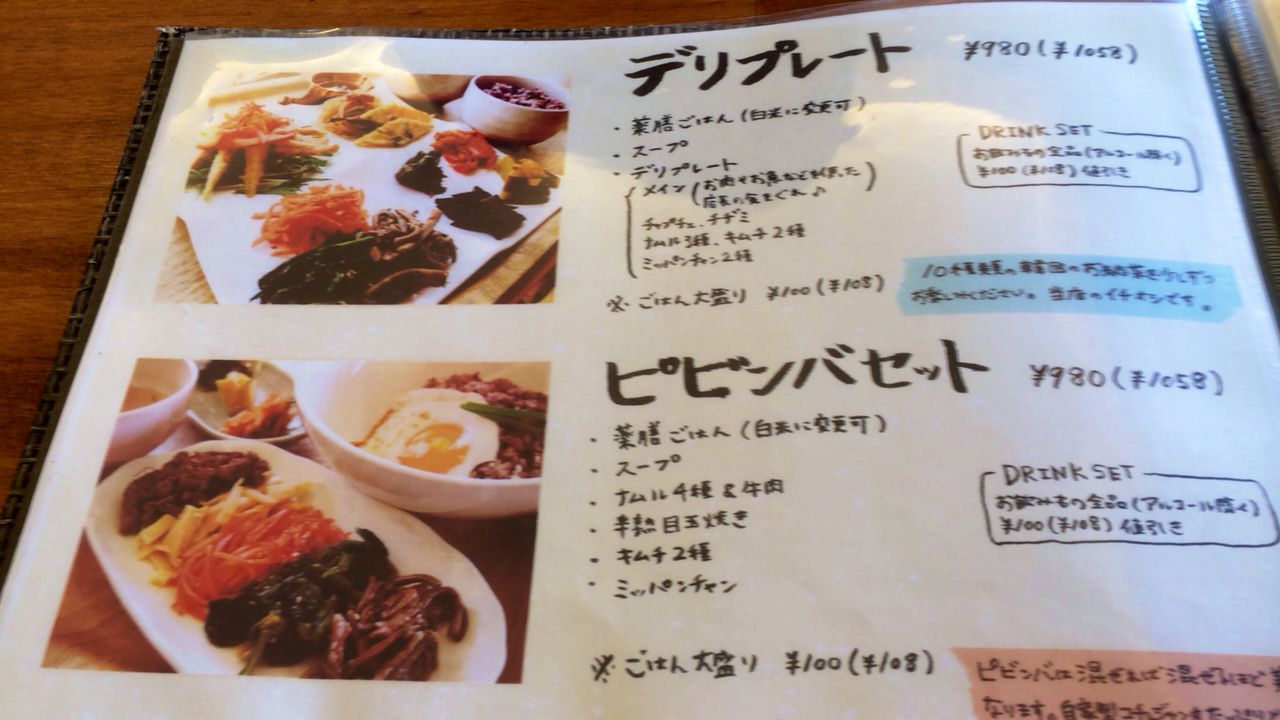 デリプレート ¥980(¥1058)
・薬膳ごはん(白米に変更可)
・スープ
・デリプレート
メイン(お肉やお魚などを使った
店長の気まぐれ♪)
チャプチェ、チヂミ
ナムル3種、キムチ2種
ミッパンチャン2種
※ごはん大盛り ¥100(¥108)
DRINK SET
お飲みもの全品(アルコール除く)
¥100(¥108)値引き
10種類の韓国のお惣菜を少しずつ
お楽しみください。当店のイチオシです。
ピビンバセット ¥980(¥1058)
・薬膳ごはん(白米に変更可)
・スープ
・ナムル4種&牛肉
・半熟目玉焼き
・キムチ2種
・ミッパンチャン
※ごはん大盛り ¥100(¥108)
DRINK SET
お飲みもの全品(アルコール除く)
¥100(¥108)値引き
ピビンバは混ぜれば混ぜるほど
なります。自家製コチュジャンをたっぷり